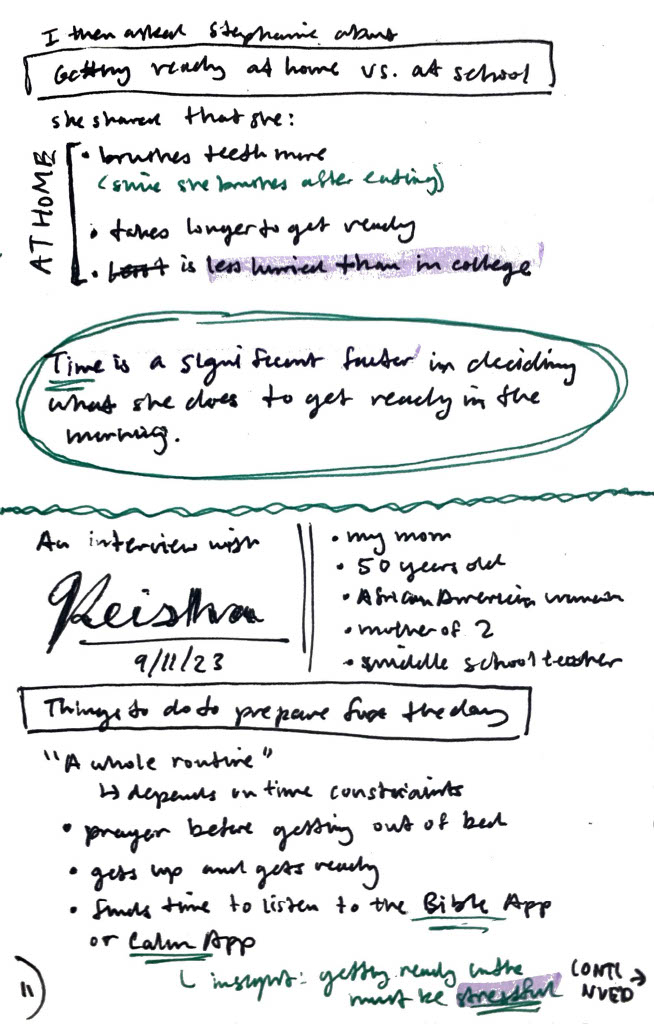 I then asked Stephanie about
Getting ready at home vs. at school
she shared that she:
AT HOME
• brushes teeth more
(since she brushes after eating)
• takes longer to get ready
• is less hurried than in college
Time is a significant factor in deciding
what she does to get ready in the
morning.
An interview with
Keisha
9/11/23
• my mom
• 50 years old
• African American woman
• mother of 2
• middle school teacher
Things to do to prepare for the day
"A whole routine"
↳ depends on time constraints
• prayer before getting out of bed
• gets up and gets ready
• finds time to listen to the Bible App
or Calm App
insight: getting ready in the
must be stressful
CONTI →
NUED
11)